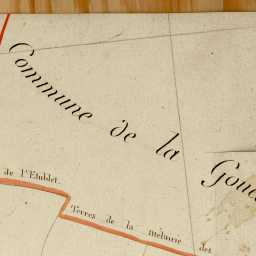 Commune de la Goud
de l'Etublet.
Terres de la métairie des